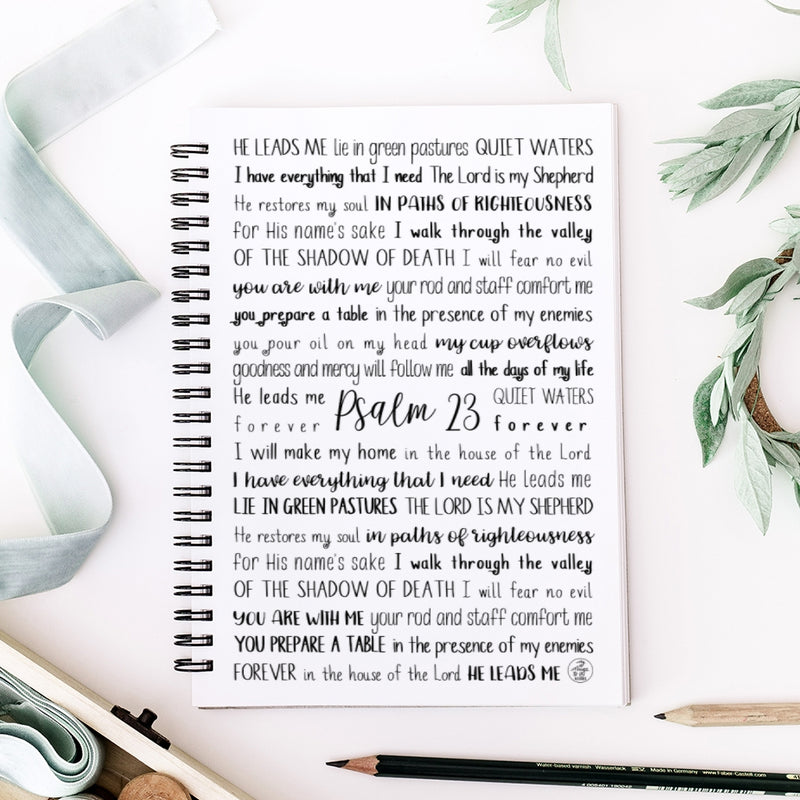 HE LEADS ME lie in green pastures QUIET WATERS
I have everything that I need The Lord is my Shepherd
He restores my soul IN PATHS OF RIGHTEOUSNESS
for His name's sake I walk through the valley
OF THE SHADOW OF DEATH I will fear no evil
you are with me your rod and staff comfort me
you prepare a table in the presence of my enemies
you pour oil on my head my cup overflows
goodness and mercy will follow me all the days of my life
He leads me Psalm 23 QUIET WATERS
forever forever
I will make my home in the house of the Lord
I have everything that I need He leads me
LIE IN GREEN PASTURES THE LORD IS MY SHEPHERD
He restores my soul in paths of righteousness
for His name's sake I walk through the valley
OF THE SHADOW OF DEATH I will fear no evil
YOU ARE WITH ME your rod and staff comfort me
YOU PREPARE A TABLE in the presence of my enemies
FOREVER in the house of the Lord HE LEADS ME
Water-based varnish Wasserlack Made in Germany www.Faber-Castell.com